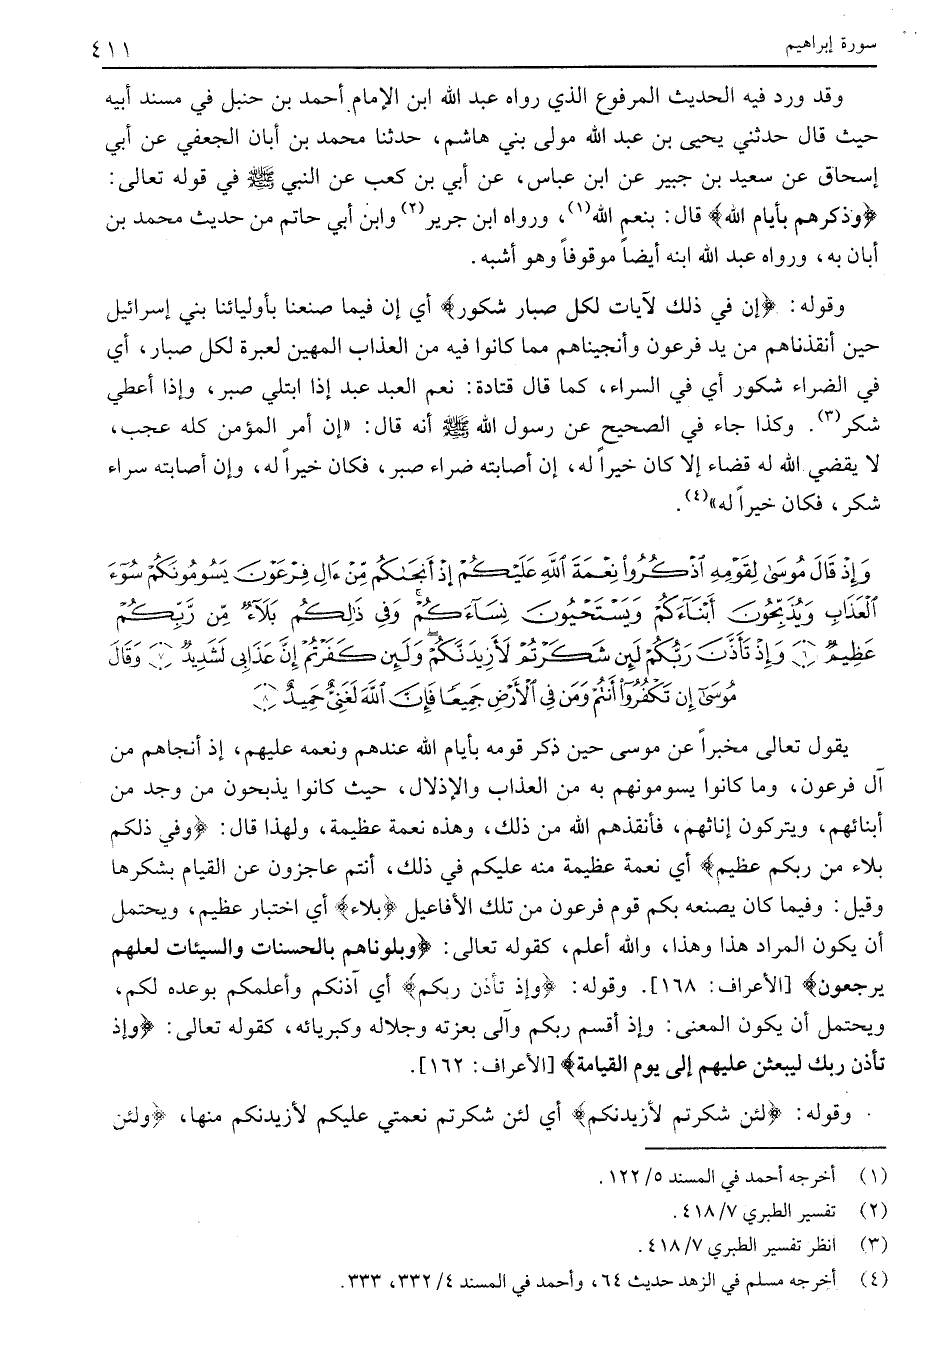 سورة إبراهيم
٤١١
وقد ورد فيه الحديث المرفوع الذي رواه عبد الله ابن الإمام أحمد بن حنبل في مسند أبيه
حيث قال حدثني يحيى بن عبد الله مولى بني هاشم، حدثنا محمد بن أبان الجعفي عن أبي
إسحاق عن سعيد بن جبير عن ابن عباس، عن أبي بن كعب عن النبي ﷺ في قوله تعالى:
﴿وذكرهم بأيام الله﴾ قال: بنعم الله(١)، ورواه ابن جرير(٢) وابن أبي حاتم من حديث محمد بن
أبان به، ورواه عبد الله ابنه أيضاً موقوفاً وهو أشبه.
وقوله: ﴿إن في ذلك لآيات لكل صبار شكور﴾ أي إن فيما صنعنا بأوليائنا بني إسرائيل
حين أنقذناهم من يد فرعون وأنجيناهم مما كانوا فيه من العذاب المهين لعبرة لكل صبار، أي
في الضراء شكور أي في السراء، كما قال قتادة: نعم العبد عبد إذا ابتلي صبر، وإذا أعطي
شكر(٣). وكذا جاء في الصحيح عن رسول الله ﷺ أنه قال: «إن أمر المؤمن كله عجب،
لا يقضي الله له قضاء إلا كان خيراً له، إن أصابته ضراء صبر، فكان خيراً له، وإن أصابته سراء
شكر، فكان خيراً له»(٤).
وَإِذْ قَالَ مُوسَىٰ لِقَوْمِهِ ٱذْكُرُوا۟ نِعْمَةَ ٱللَّهِ عَلَيْكُمْ إِذْ أَنجَىٰكُم مِّنْ ءَالِ فِرْعَوْنَ يَسُومُونَكُمْ سُوٓءَ
ٱلْعَذَابِ وَيُذَبِّحُونَ أَبْنَآءَكُمْ وَيَسْتَحْيُونَ نِسَآءَكُمْ ۚ وَفِى ذَٰلِكُم بَلَآءٌ مِّن رَّبِّكُمْ
عَظِيمٌ ﴿٦﴾ وَإِذْ تَأَذَّنَ رَبُّكُمْ لَئِن شَكَرْتُمْ لَأَزِيدَنَّكُمْ ۖ وَلَئِن كَفَرْتُمْ إِنَّ عَذَابِى لَشَدِيدٌ ﴿٧﴾ وَقَالَ
مُوسَىٰٓ إِن تَكْفُرُوٓا۟ أَنتُمْ وَمَن فِى ٱلْأَرْضِ جَمِيعًا فَإِنَّ ٱللَّهَ لَغَنِىٌّ حَمِيدٌ ﴿٨﴾
يقول تعالى مخبراً عن موسى حين ذكر قومه بأيام الله عندهم ونعمه عليهم، إذ أنجاهم من
آل فرعون، وما كانوا يسومونهم به من العذاب والإذلال، حيث كانوا يذبحون من وجد من
أبنائهم، ويتركون إناثهم، فأنقذهم الله من ذلك، وهذه نعمة عظيمة، ولهذا قال: ﴿وفي ذلكم
بلاء من ربكم عظيم﴾ أي نعمة عظيمة منه عليكم في ذلك، أنتم عاجزون عن القيام بشكرها
وقيل: وفيما كان يصنعه بكم قوم فرعون من تلك الأفاعيل ﴿بلاء﴾ أي اختبار عظيم، ويحتمل
أن يكون المراد هذا وهذا، والله أعلم، كقوله تعالى: ﴿وبلوناهم بالحسنات والسيئات لعلهم
يرجعون﴾ [الأعراف: ١٦٨]. وقوله: ﴿وإذ تأذن ربكم﴾ أي آذنكم وأعلمكم بوعده لكم،
ويحتمل أن يكون المعنى: وإذ أقسم ربكم وآلى بعزته وجلاله وكبريائه، كقوله تعالى: ﴿وإذ
تأذن ربك ليبعثن عليهم إلى يوم القيامة﴾ [الأعراف: ١٦٢].
وقوله: ﴿لئن شكرتم لأزيدنكم﴾ أي لئن شكرتم نعمتي عليكم لأزيدنكم منها، ﴿ولئن
(١) أخرجه أحمد في المسند ٥/ ١٢٢.
(٢) تفسير الطبري ٧/ ٤١٨.
(٣) انظر تفسير الطبري ٧/ ٤١٨.
(٤) أخرجه مسلم في الزهد حديث ٦٤، وأحمد في المسند ٤/ ٣٣٢، ٣٣٣.